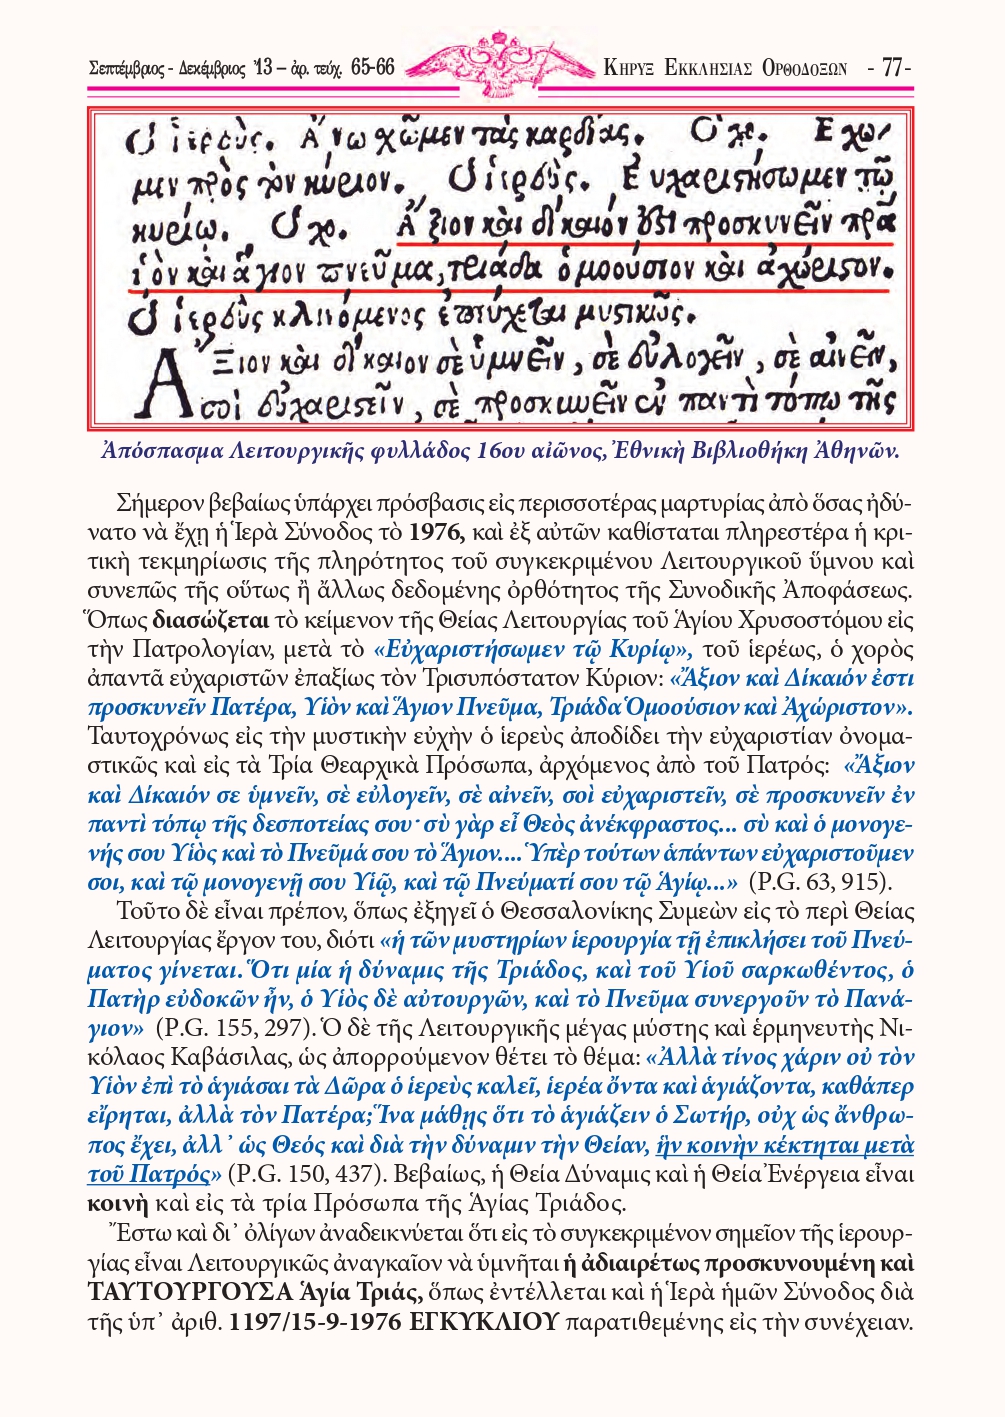 Σεπτέμβριος - Δεκέμβριος '13 – ἀρ. τεύχ. 65-66
ΚΗΡΥΞ ΕΚΚΛΗΣΙΑΣ ΟΡΘΟΔΟΞΩΝ - 77-
Ὁ ἱερεὺς. Ἄνω χῶμεν τὰς καρδίας. Ὁ χο. Ἔχο
μεν πρὸς τὸν κύριον. Ὁ ἱερεὺς. Εὐχαριστήσωμεν τῷ
κυρίω. Ὁ χο. Ἄξιον καὶ δίκαιόν ἐστι προσκυνεῖν πρα
ὑὸν καὶ ἅγιον πνεῦμα, τριάδα ὁμοούσιον καὶ ἀχώριστον.
Ὁ ἱερεὺς κλινόμενος ἐπεύχεται μυστικῶς.
Ἄξιον καὶ δίκαιον σὲ ὑμνεῖν, σὲ εὐλογεῖν, σὲ αἰνεῖν,
σοὶ εὐχαριστεῖν, σὲ προσκυνεῖν ἐν παντὶ τόπω τῆς
Ἀπόσπασμα Λειτουργικῆς φυλλάδος 16ου αἰῶνος, Ἐθνικὴ Βιβλιοθήκη Ἀθηνῶν.
Σήμερον βεβαίως ὑπάρχει πρόσβασις εἰς περισσοτέρας μαρτυρίας ἀπὸ ὅσας ἠδύ-
νατο νὰ ἔχῃ ἡ Ἱερὰ Σύνοδος τὸ 1976, καὶ ἐξ αὐτῶν καθίσταται πληρεστέρα ἡ κρι-
τικὴ τεκμηρίωσις τῆς πληρότητος τοῦ συγκεκριμένου Λειτουργικοῦ ὕμνου καὶ
συνεπῶς τῆς οὕτως ἢ ἄλλως δεδομένης ὀρθότητος τῆς Συνοδικῆς Ἀποφάσεως.
Ὅπως διασώζεται τὸ κείμενον τῆς Θείας Λειτουργίας τοῦ Ἁγίου Χρυσοστόμου εἰς
τὴν Πατρολογίαν, μετὰ τὸ «Εὐχαριστήσωμεν τῷ Κυρίῳ», τοῦ ἱερέως, ὁ χορὸς
ἀπαντᾶ εὐχαριστῶν ἐπαξίως τὸν Τρισυπόστατον Κύριον: «Ἄξιον καὶ Δίκαιόν ἐστι
προσκυνεῖν Πατέρα, Υἱὸν καὶ Ἅγιον Πνεῦμα, Τριάδα Ὁμοούσιον καὶ Ἀχώριστον».
Ταυτοχρόνως εἰς τὴν μυστικὴν εὐχὴν ὁ ἱερεὺς ἀποδίδει τὴν εὐχαριστίαν ὀνομα-
στικῶς καὶ εἰς τὰ Τρία Θεαρχικὰ Πρόσωπα, ἀρχόμενος ἀπὸ τοῦ Πατρός: «Ἄξιον
καὶ Δίκαιόν σε ὑμνεῖν, σὲ εὐλογεῖν, σὲ αἰνεῖν, σοὶ εὐχαριστεῖν, σὲ προσκυνεῖν ἐν
παντὶ τόπῳ τῆς δεσποτείας σου· σὺ γὰρ εἶ Θεὸς ἀνέκφραστος... σὺ καὶ ὁ μονογε-
νής σου Υἱὸς καὶ τὸ Πνεῦμά σου τὸ Ἅγιον.... Ὑπὲρ τούτων ἁπάντων εὐχαριστοῦμεν
σοι, καὶ τῷ μονογενῇ σου Υἱῷ, καὶ τῷ Πνεύματί σου τῷ Ἁγίῳ...» (P.G. 63, 915).
Τοῦτο δὲ εἶναι πρέπον, ὅπως ἐξηγεῖ ὁ Θεσσαλονίκης Συμεὼν εἰς τὸ περὶ Θείας
Λειτουργίας ἔργον του, διότι «ἡ τῶν μυστηρίων ἱερουργία τῇ ἐπικλήσει τοῦ Πνεύ-
ματος γίνεται. Ὅτι μία ἡ δύναμις τῆς Τριάδος, καὶ τοῦ Υἱοῦ σαρκωθέντος, ὁ
Πατὴρ εὐδοκῶν ἦν, ὁ Υἱὸς δὲ αὐτουργῶν, καὶ τὸ Πνεῦμα συνεργοῦν τὸ Πανά-
γιον» (P.G. 155, 297). Ὁ δὲ τῆς Λειτουργικῆς μέγας μύστης καὶ ἑρμηνευτὴς Νι-
κόλαος Καβάσιλας, ὡς ἀπορρούμενον θέτει τὸ θέμα: «Ἀλλὰ τίνος χάριν οὐ τὸν
Υἱὸν ἐπὶ τὸ ἁγιάσαι τὰ Δῶρα ὁ ἱερεὺς καλεῖ, ἱερέα ὄντα καὶ ἁγιάζοντα, καθάπερ
εἴρηται, ἀλλὰ τὸν Πατέρα; Ἵνα μάθῃς ὅτι τὸ ἁγιάζειν ὁ Σωτήρ, οὐχ ὡς ἄνθρω-
πος ἔχει, ἀλλ᾽ ὡς Θεός καὶ διὰ τὴν δύναμιν τὴν Θείαν, ἣν κοινὴν κέκτηται μετὰ
τοῦ Πατρός» (P.G. 150, 437). Βεβαίως, ἡ Θεία Δύναμις καὶ ἡ Θεία Ἐνέργεια εἶναι
κοινὴ καὶ εἰς τὰ τρία Πρόσωπα τῆς Ἁγίας Τριάδος.
Ἔστω καὶ δι᾽ ὀλίγων ἀναδεικνύεται ὅτι εἰς τὸ συγκεκριμένον σημεῖον τῆς ἱερουρ-
γίας εἶναι Λειτουργικῶς ἀναγκαῖον νὰ ὑμνῆται ἡ ἀδιαιρέτως προσκυνουμένη καὶ
ΤΑΥΤΟΥΡΓΟΥΣΑ Ἁγία Τριάς, ὅπως ἐντέλλεται καὶ ἡ Ἱερὰ ἡμῶν Σύνοδος διὰ
τῆς ὑπ᾽ ἀριθ. 1197/15-9-1976 ΕΓΚΥΚΛΙΟΥ παρατιθεμένης εἰς τὴν συνέχειαν.